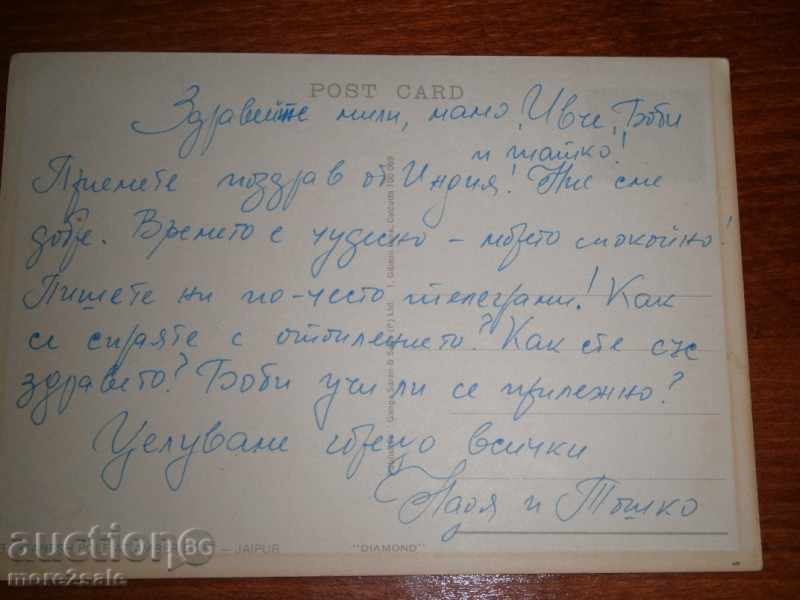 POST CARD
Здравейте мили, мамо, Ивче, Боби
и татко!
Приемете поздрав от Индия! Ние сме
добре. Времето е чудесно – морето спокойно!
Пишете ни по-често телеграми! Как
се справяте с отоплението? Как сте със
здравето? Боби учи ли се прилежно?
Целуваме горещо всички
Надя и Тошко
JAIPUR "DIAMOND"
auction BG
more2sale